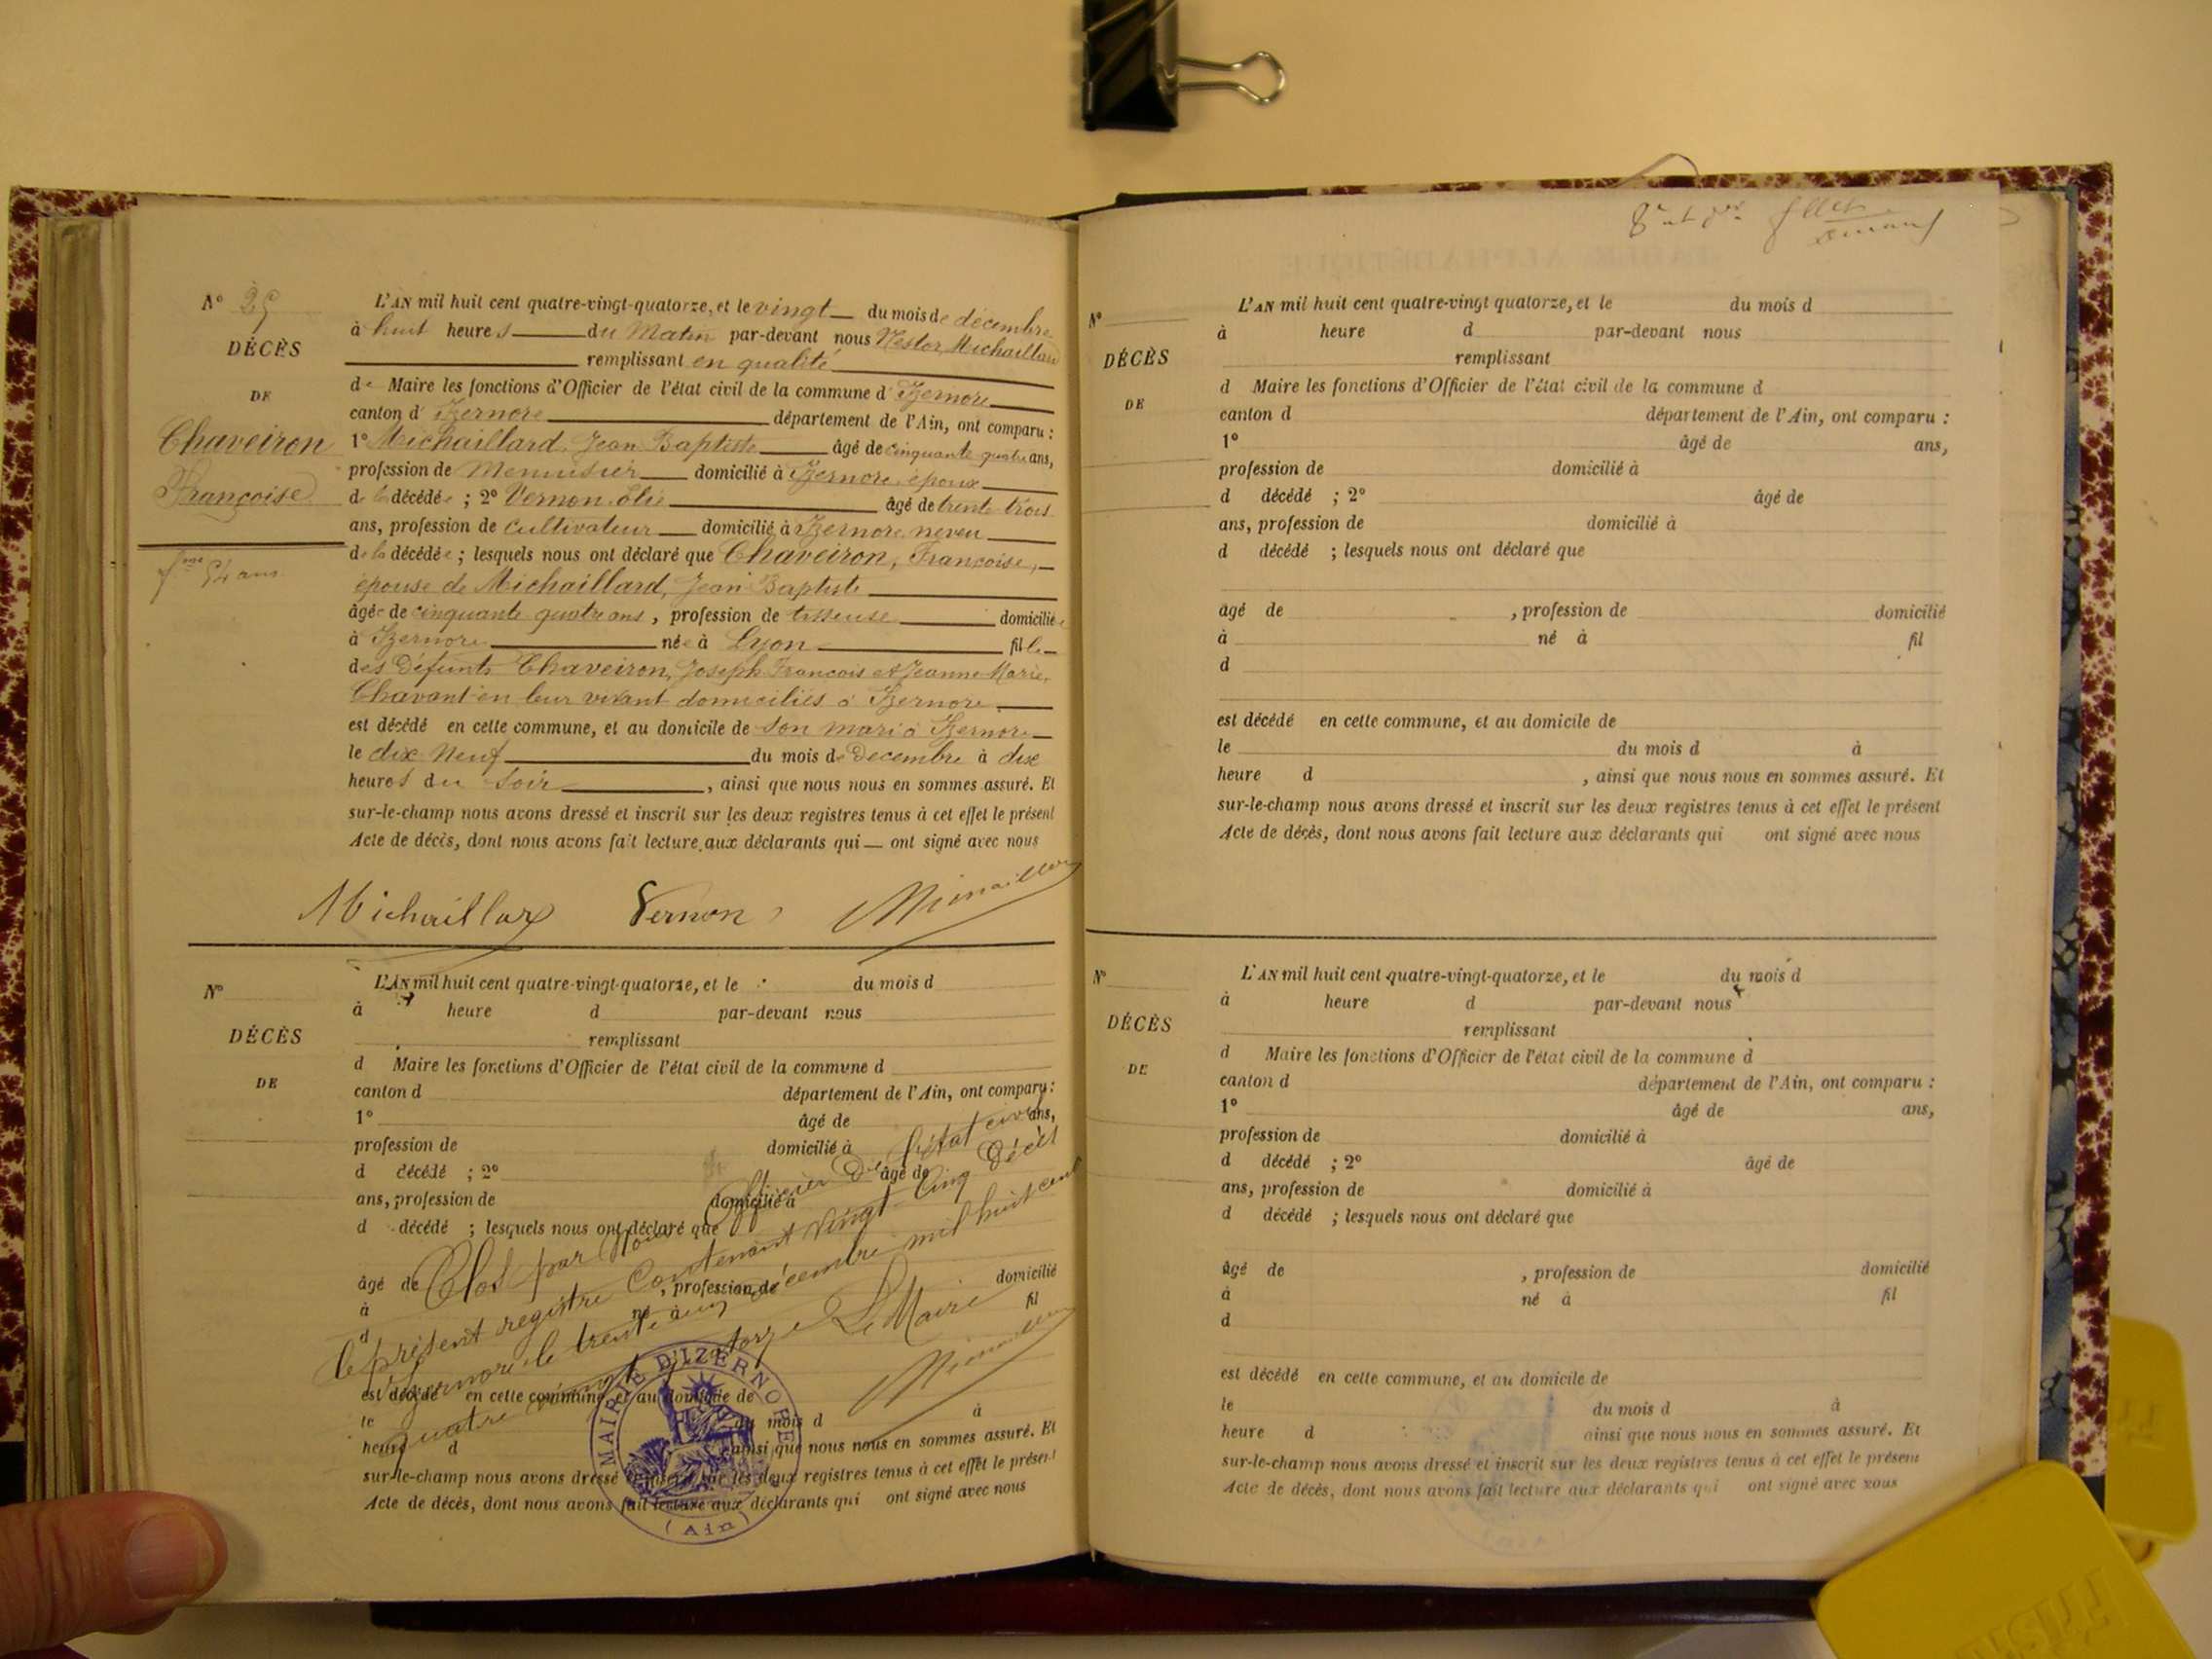 N° 25
DÉCÈS
DE
Chaveiron
Françoise
fme 54 ans
L'AN mil huit cent quatre-vingt-quatorze, et le vingt du mois de décembre
à huit heures du Matin par-devant nous Nestor Michaillard
remplissant en qualité
de Maire les fonctions d'Officier de l'état civil de la commune d'Izernore
canton d'Izernore département de l'Ain, ont comparu :
1° Michaillard, Jean Baptiste âgé de cinquante quatre ans,
profession de Menuisier domicilié à Izernore époux
de la décédée ; 2° Vernon âgé de trente trois
ans, profession de cultivateur domicilié à Izernore neveu
de la décédée ; lesquels nous ont déclaré que Chaveiron, Françoise,
épouse de Michaillard, Jean Baptiste
âgée de cinquante quatre ans, profession de tisseuse domiciliée
à Izernore née à Lyon fille
des Défunts Chaveiron, Joseph François et Jeanne Marie,
Chavant en leur vivant domiciliés à Izernore.
est décédé en cette commune, et au domicile de son mari à Izernore
le dix Neuf du mois de Décembre à dix
heures du Soir, ainsi que nous nous en sommes assuré. Et
sur-le-champ nous avons dressé et inscrit sur les deux registres tenus à cet effet le présent
Acte de décès, dont nous avons fait lecture aux déclarants qui ont signé avec nous
Michaillard Vernon Michaillard
N°
DÉCÈS
DE
L'AN mil huit cent quatre-vingt-quatorze, et le du mois d
à heure d par-devant nous
remplissant
d Maire les fonctions d'Officier de l'état civil de la commune d
canton d département de l'Ain, ont comparu :
1° âgé de ans,
profession de domicilié à
d décédé ; 2° âgé de
ans, profession de domicilié à
d décédé ; lesquels nous ont déclaré que
âgé de , profession de domicilié
à né à fil
d
est décédé en cette commune, et au domicile de
le du mois d à
heure d ainsi que nous nous en sommes assuré. Et
sur-le-champ nous avons dressé et inscrit sur les deux registres tenus à cet effet le présent
Acte de décès, dont nous avons fait lecture aux déclarants qui ont signé avec nous
Clos par Nous Officier De l'état civil
le présent registre Contenant Vingt Cinq Décès
Izernore le trente un décembre mil huit cent
quatre vingt quatorze Le Maire
Michaillard
MAIRIE D'IZERNORE
(Ain)
N°
DÉCÈS
DE
L'AN mil huit cent quatre-vingt quatorze, et le du mois d
à heure d par-devant nous
remplissant
d Maire les fonctions d'Officier de l'état civil de la commune d
canton d département de l'Ain, ont comparu :
1° âgé de ans,
profession de domicilié à
d décédé ; 2° âgé de
ans, profession de domicilié à
d décédé ; lesquels nous ont déclaré que
âgé de , profession de domicilié
à né à fil
d
est décédé en cette commune, et au domicile de
le du mois d à
heure d , ainsi que nous nous en sommes assuré. Et
sur-le-champ nous avons dressé et inscrit sur les deux registres tenus à cet effet le présent
Acte de décès, dont nous avons fait lecture aux déclarants qui ont signé avec nous
N°
DÉCÈS
DE
L'AN mil huit cent quatre-vingt-quatorze, et le du mois d
à heure d par-devant nous
remplissant
d Maire les fonctions d'Officier de l'état civil de la commune d
canton d département de l'Ain, ont comparu :
1° âgé de ans,
profession de domicilié à
d décédé ; 2° âgé de
ans, profession de domicilié à
d décédé ; lesquels nous ont déclaré que
âgé de , profession de domicilié
à né à fil
d
est décédé en cette commune, et au domicile de
le du mois d à
heure d ainsi que nous nous en sommes assuré. Et
sur-le-champ nous avons dressé et inscrit sur les deux registres tenus à cet effet le présent
Acte de décès, dont nous avons fait lecture aux déclarants qui ont signé avec nous